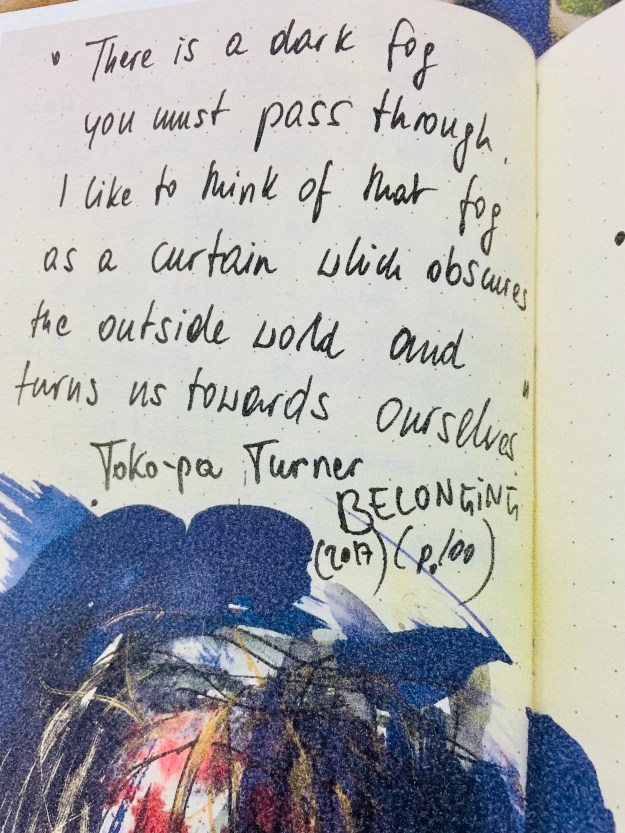 " There is a dark fog
you must pass through.
I like to think of that fog
as a curtain which obscures
the outside world and
turns us towards ourselves "
Toko-pa Turner
BELONGING
(2017) (p.100)